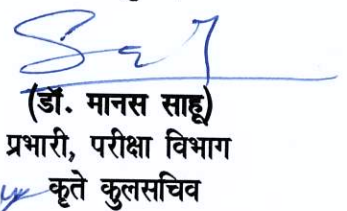 (डॉ. मानस साहू)
प्रभारी, परीक्षा विभाग
कृते कुलसचिव